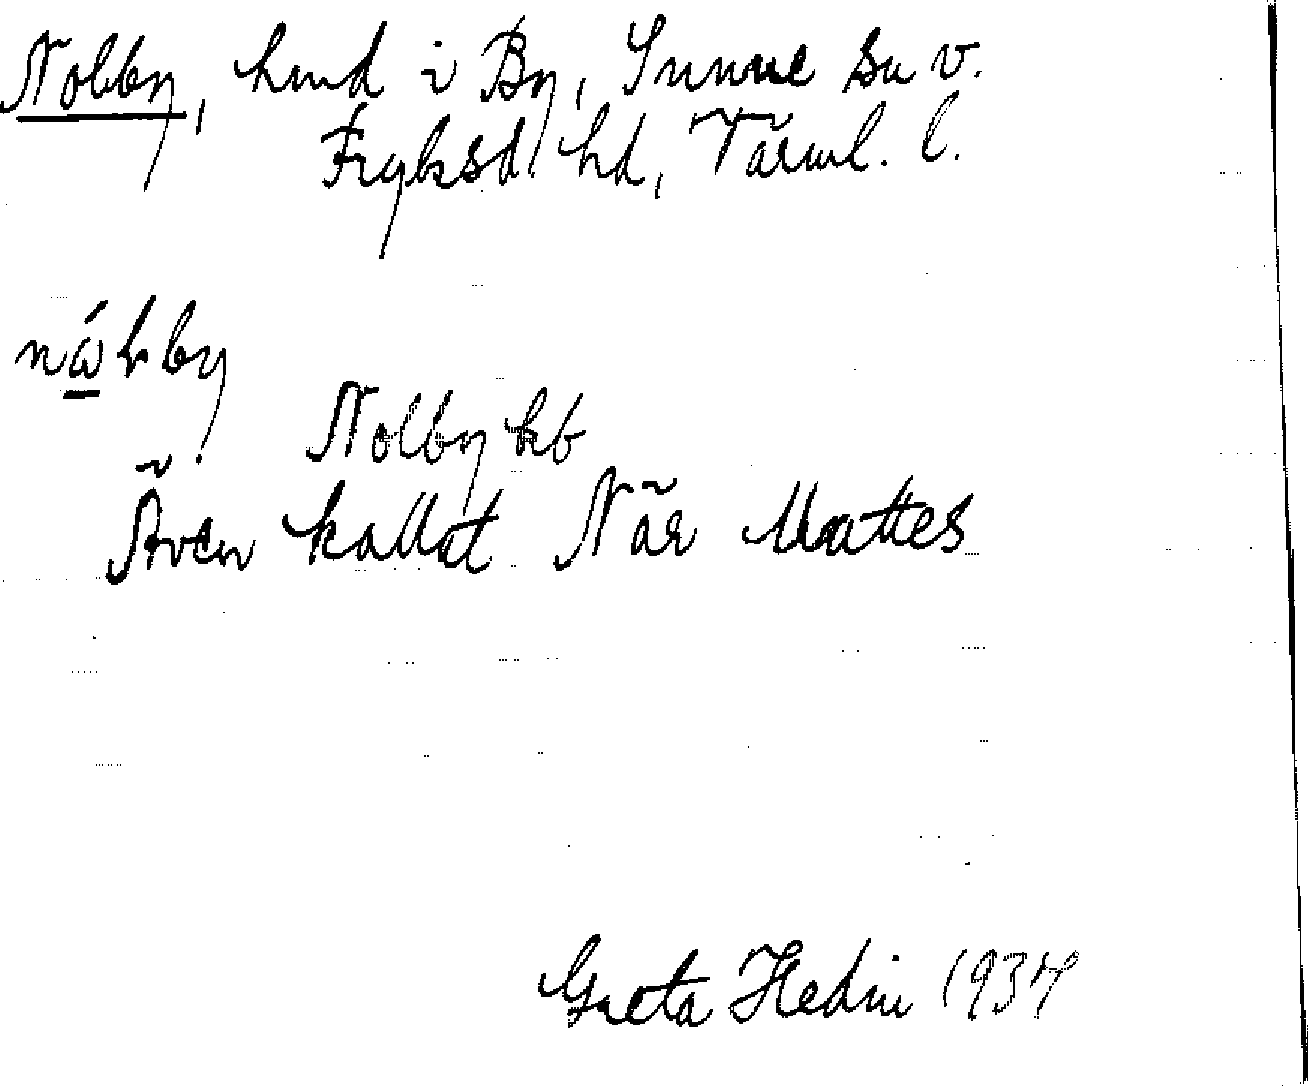 Nolby, hmd i By, Sunne sn v.
Fryksd. hd, Värml. l.
Nolby kb
Även kallat När Mattes
Greta Hedin 1934